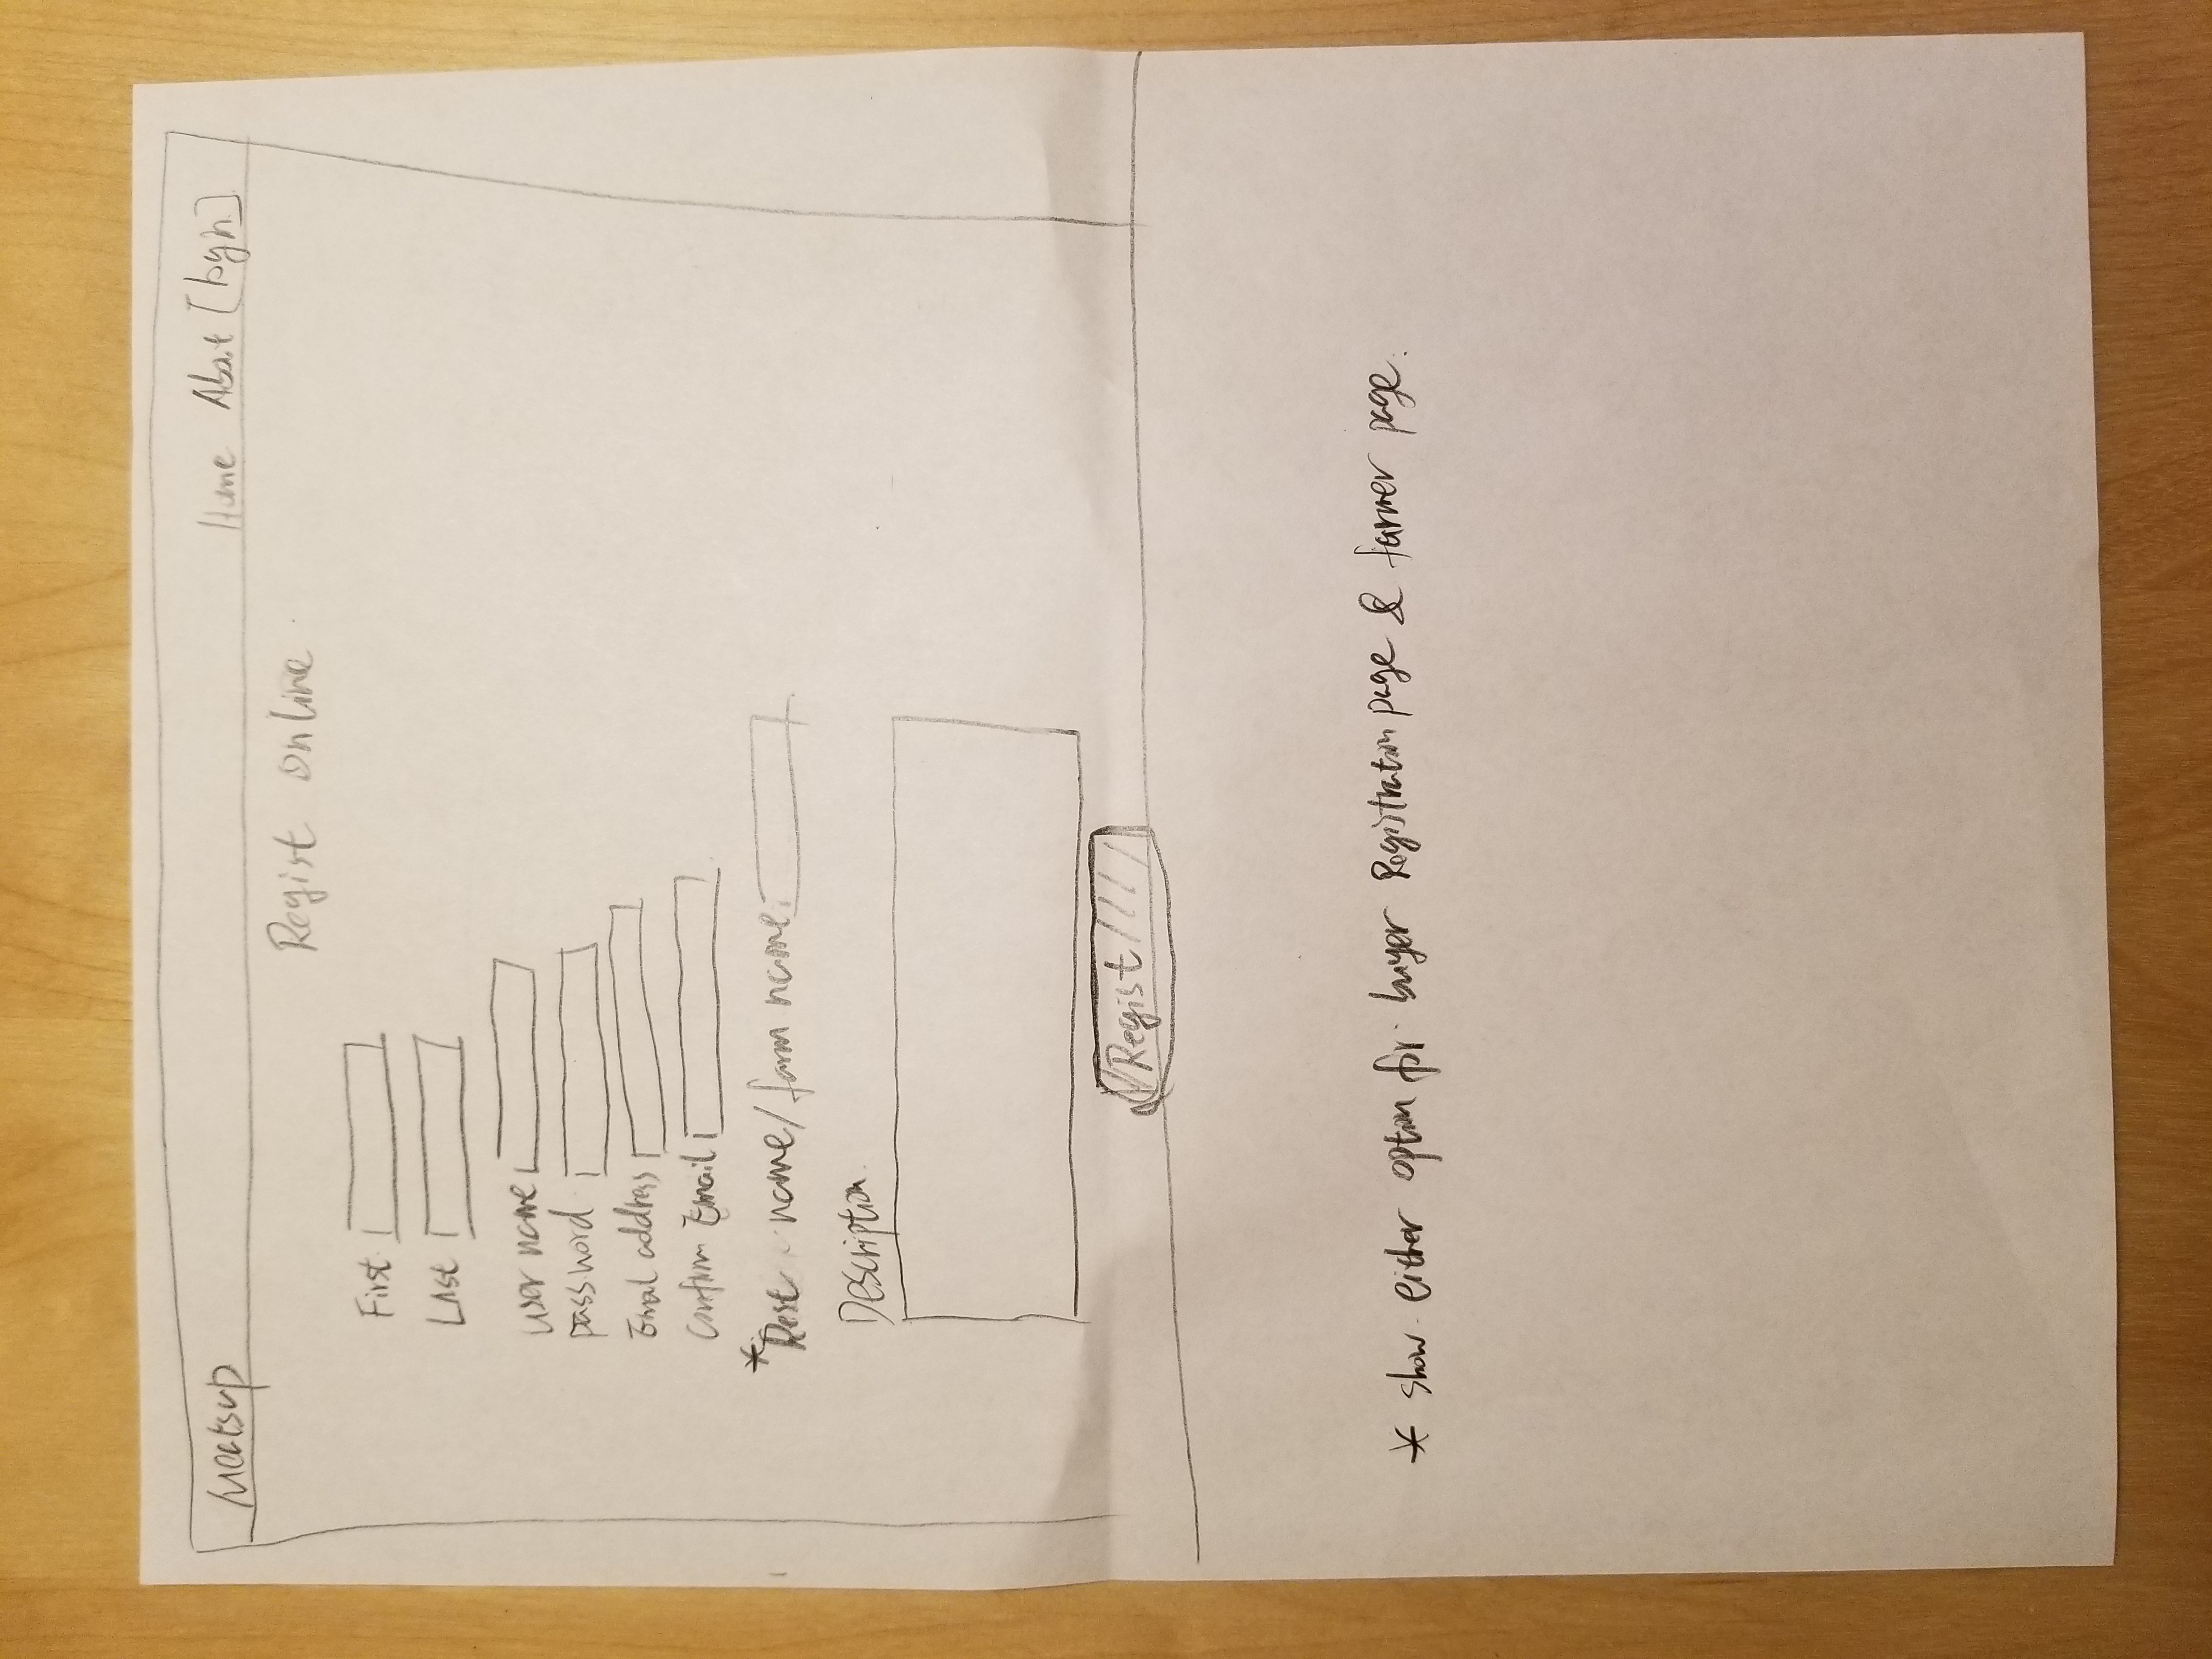 Meatsup Home About [login]
Regist online
First
Last
user name
password
Email address
Confirm Email
*Rest name/farm name
Description
Regist
* show either option for buyer Registration page & farmer page.